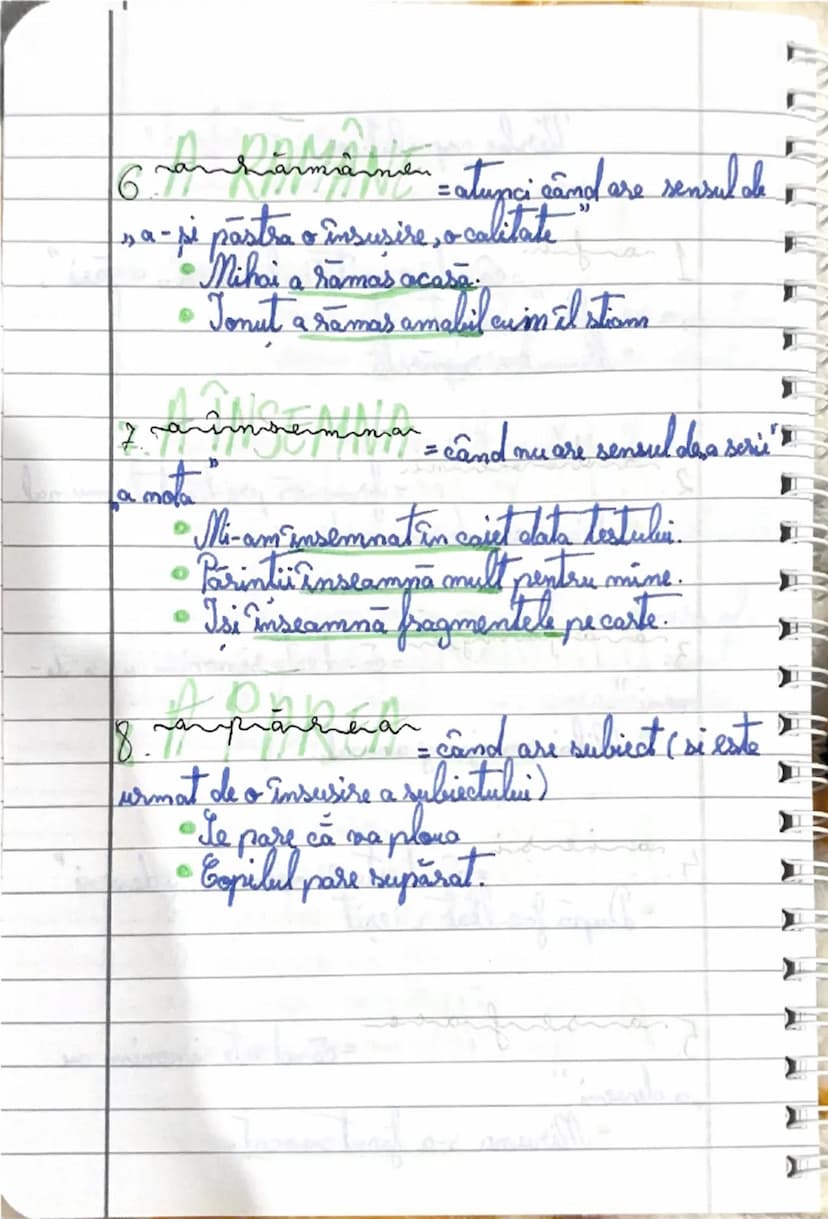 A RĂMÂNE
6. a rămâne = atunci când are sensul de
„a-și păstra o însușire, o calitate”
• Mihai a rămas acasă.
• Ionuț a rămas amabil cum îl stiam
A ÎNSEMNA
7. a însemna = când nu are sensul de „a scrie”
„a nota”
• Mi-am însemnat în caiet data testului.
• Părintii înseamnă mult pentru mine.
• Iși înseamnă fragmentele pe carte.
A PĂREA
8. a părea = când are subiect (si este
urmat de o însusire a subiectului)
• Se pare că va ploua
• Copilul pare supărat.